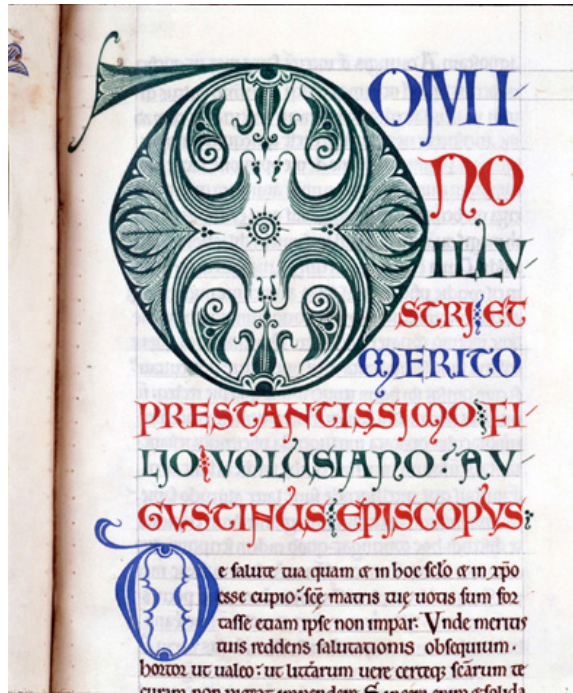 DOMI
NO
ILLV
STRI ET
MERITO
PRESTANTISSIMO FI
LIO VOLUSIANO: AV
GVSTINUS EPISCOPVS
De salute tua quam & in hoc sclo & in xpo
esse cupio: scē matris tuę uotis sum for
tasse etiam ipse non impar. Vnde meritis
tuis reddens salutationis obsequium.
hortor ut ualeo: ut littarum uere certęq; scārum te